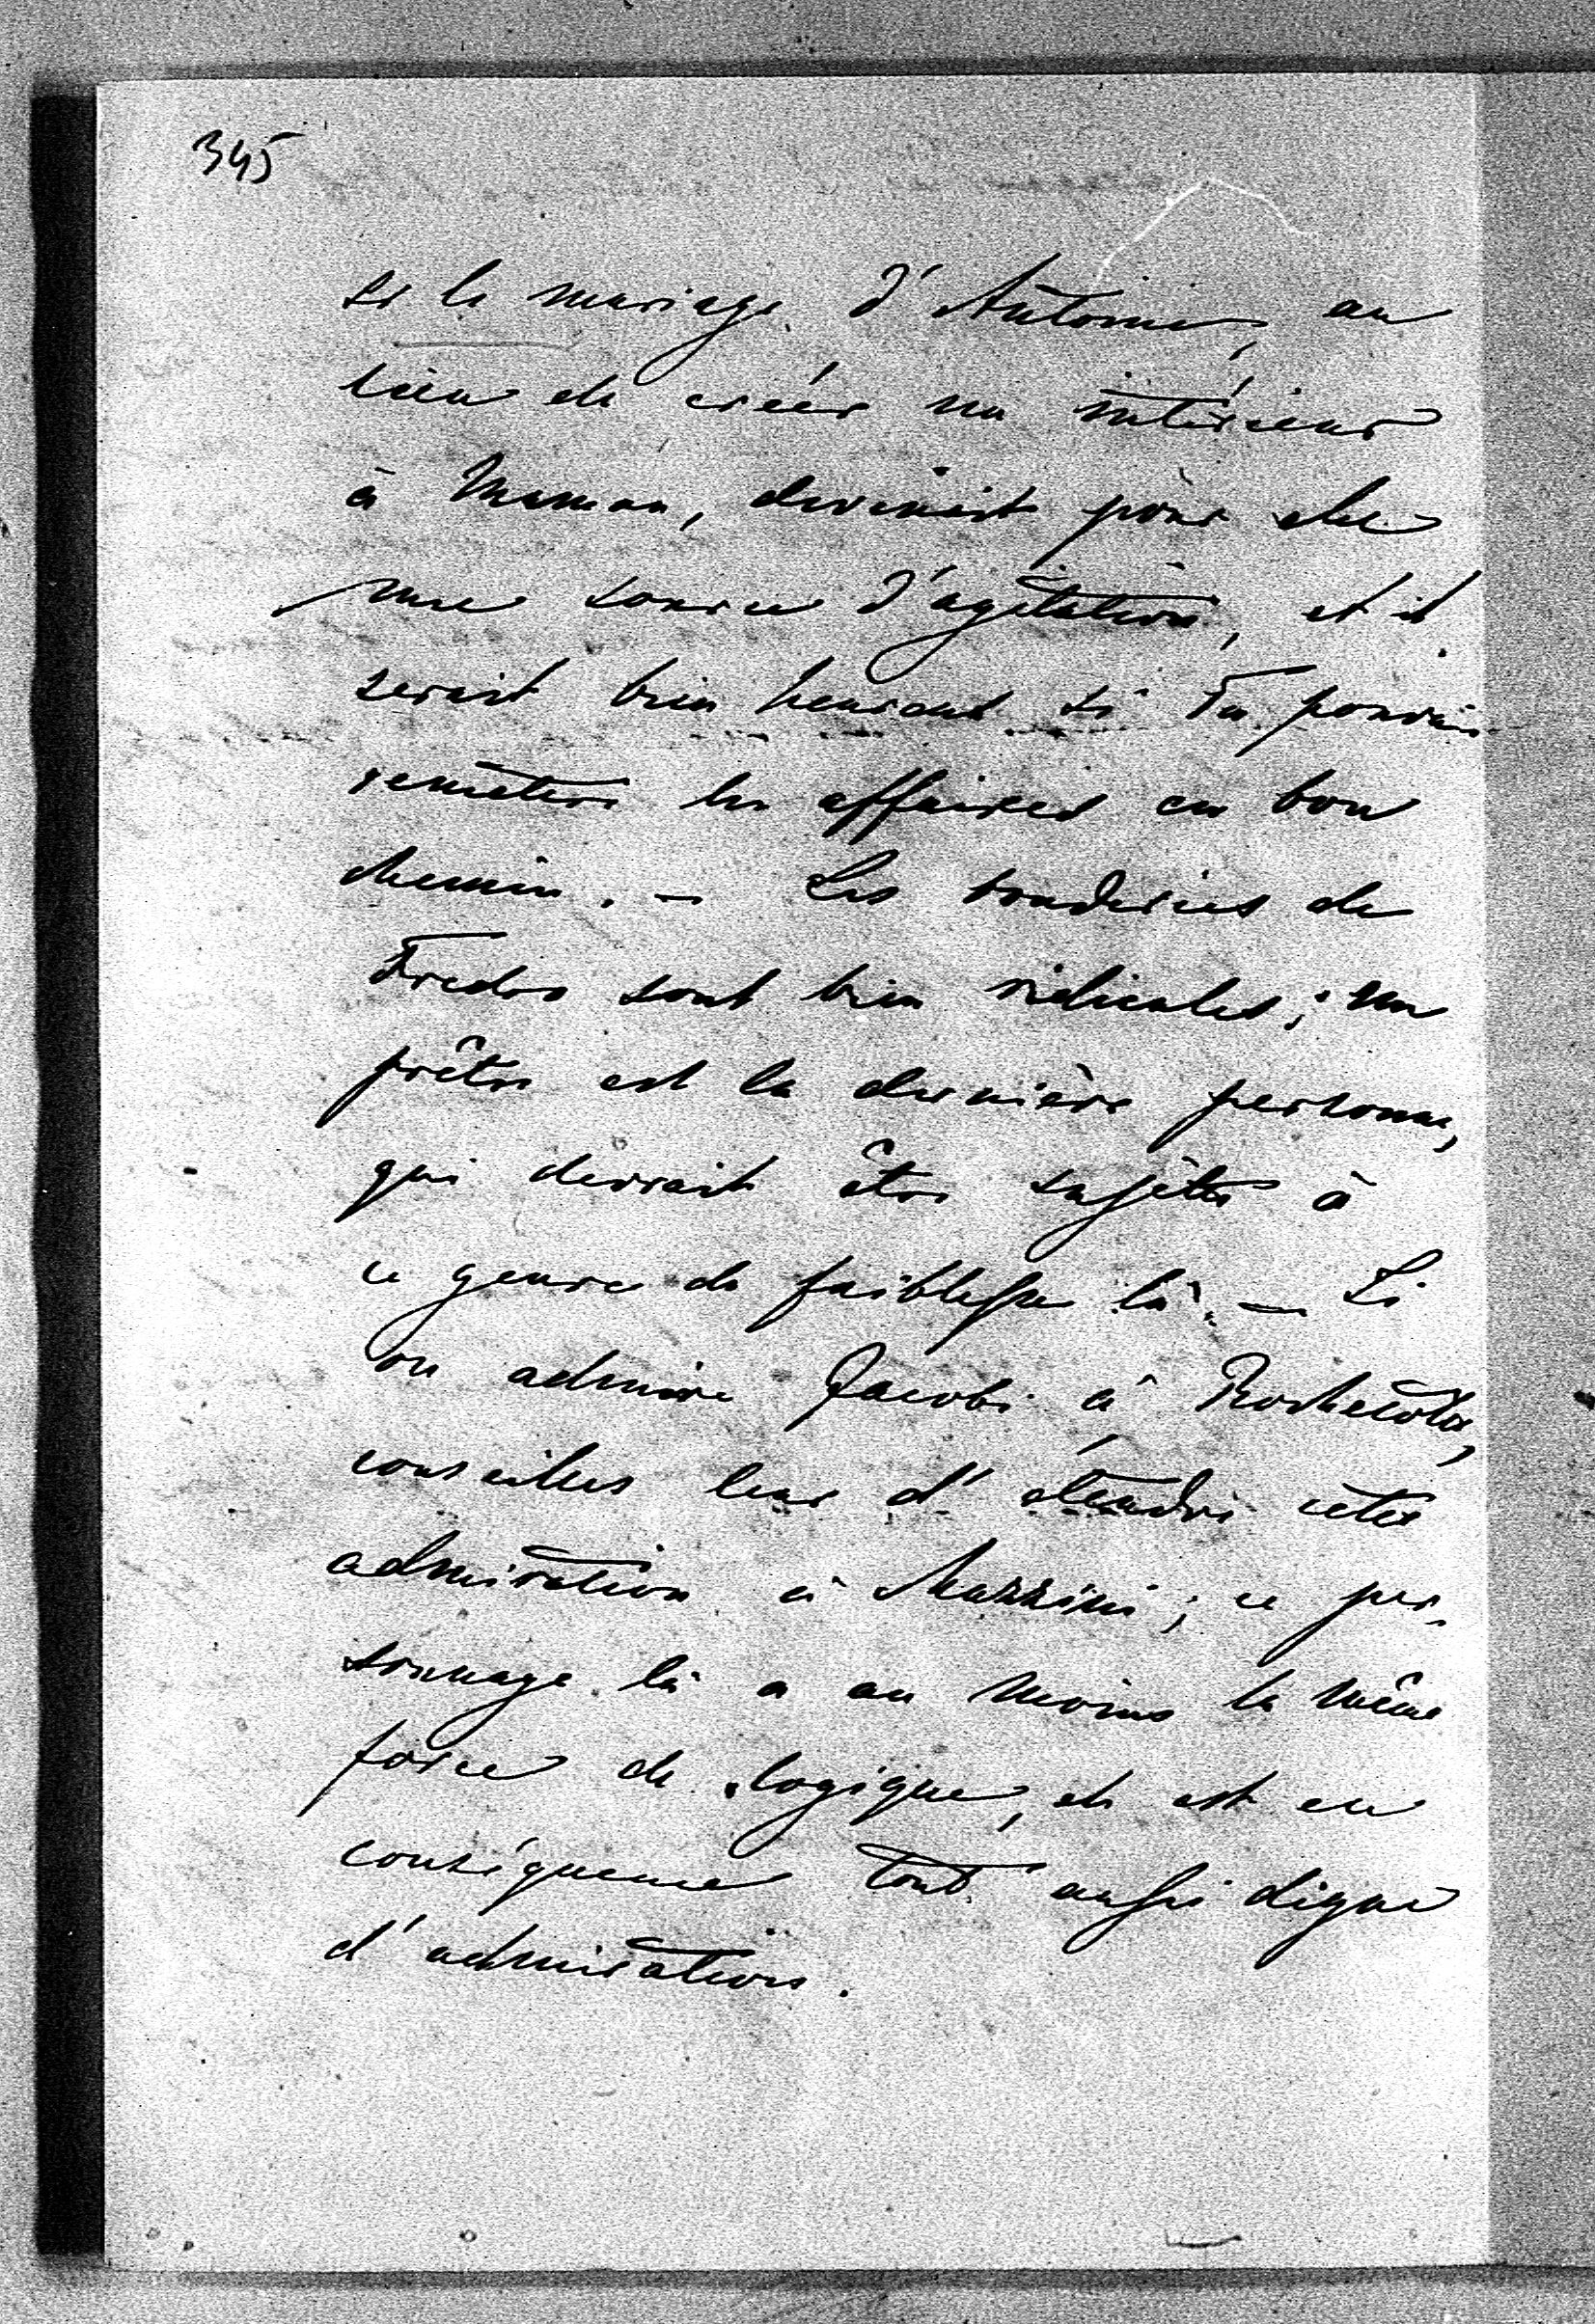 345
si le mariage d'Antoine, au
lieu de créer un intérieur
à Maman, devenait pour elle
une source d'agitation, et il
serait bien heureux si Tu pouvais
remettre les affaires en bon
chemin. — Les bouderies de
Fredro sont bien ridicules; un
prêtre est la dernière personne,
qui devrait être sujette à
ce genre de faiblesse là. — Si
on admire Jacobi à Rochecotte,
conseilles leur d'étendre cette
admiration à Mazzini; ce per-
sonnage là a au moins la même
force de logique, et est en
conséquence tout aussi digne
d'admiration.